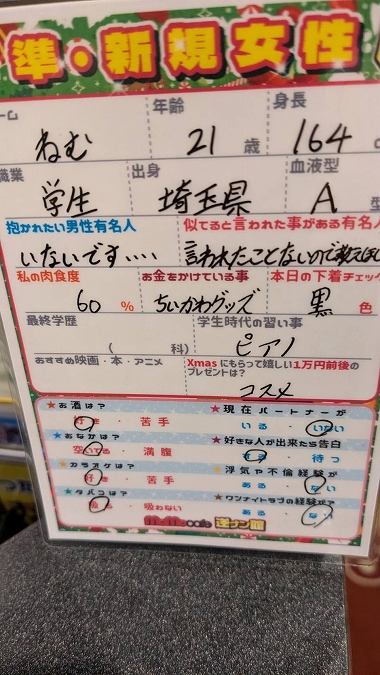 準・新規女性
ーム
ねむ
年齢
21 歳
身長
164
職業
学生
出身
埼玉県
血液型
A 型
抱かれたい男性有名人
いないです‥‥
似てると言われた事がある有名
言われたことないので教えほし
私の肉食度
60 %
お金をかけている事
ちいかわグッズ
本日の下着チェッ
黒 色
最終学歴
( 科)
学生時代の習い事
ピアノ
おすすめ映画・本・アニメ
Xmasにもらって嬉しい1万円前後の
プレゼントは?
コスメ
★お酒は?
好き・苦手
★現在パートナーが
いる・いない
★おなかは?
空いてる・満腹
★好きな人が出来たら告白
する・待つ
★カラオケは?
好き・苦手
★浮気や不倫経験が
ある・ない
★タバコは?
吸う・吸わない
★ワンナイトラブの経験が
ある・ない
cafe 逆ナン館